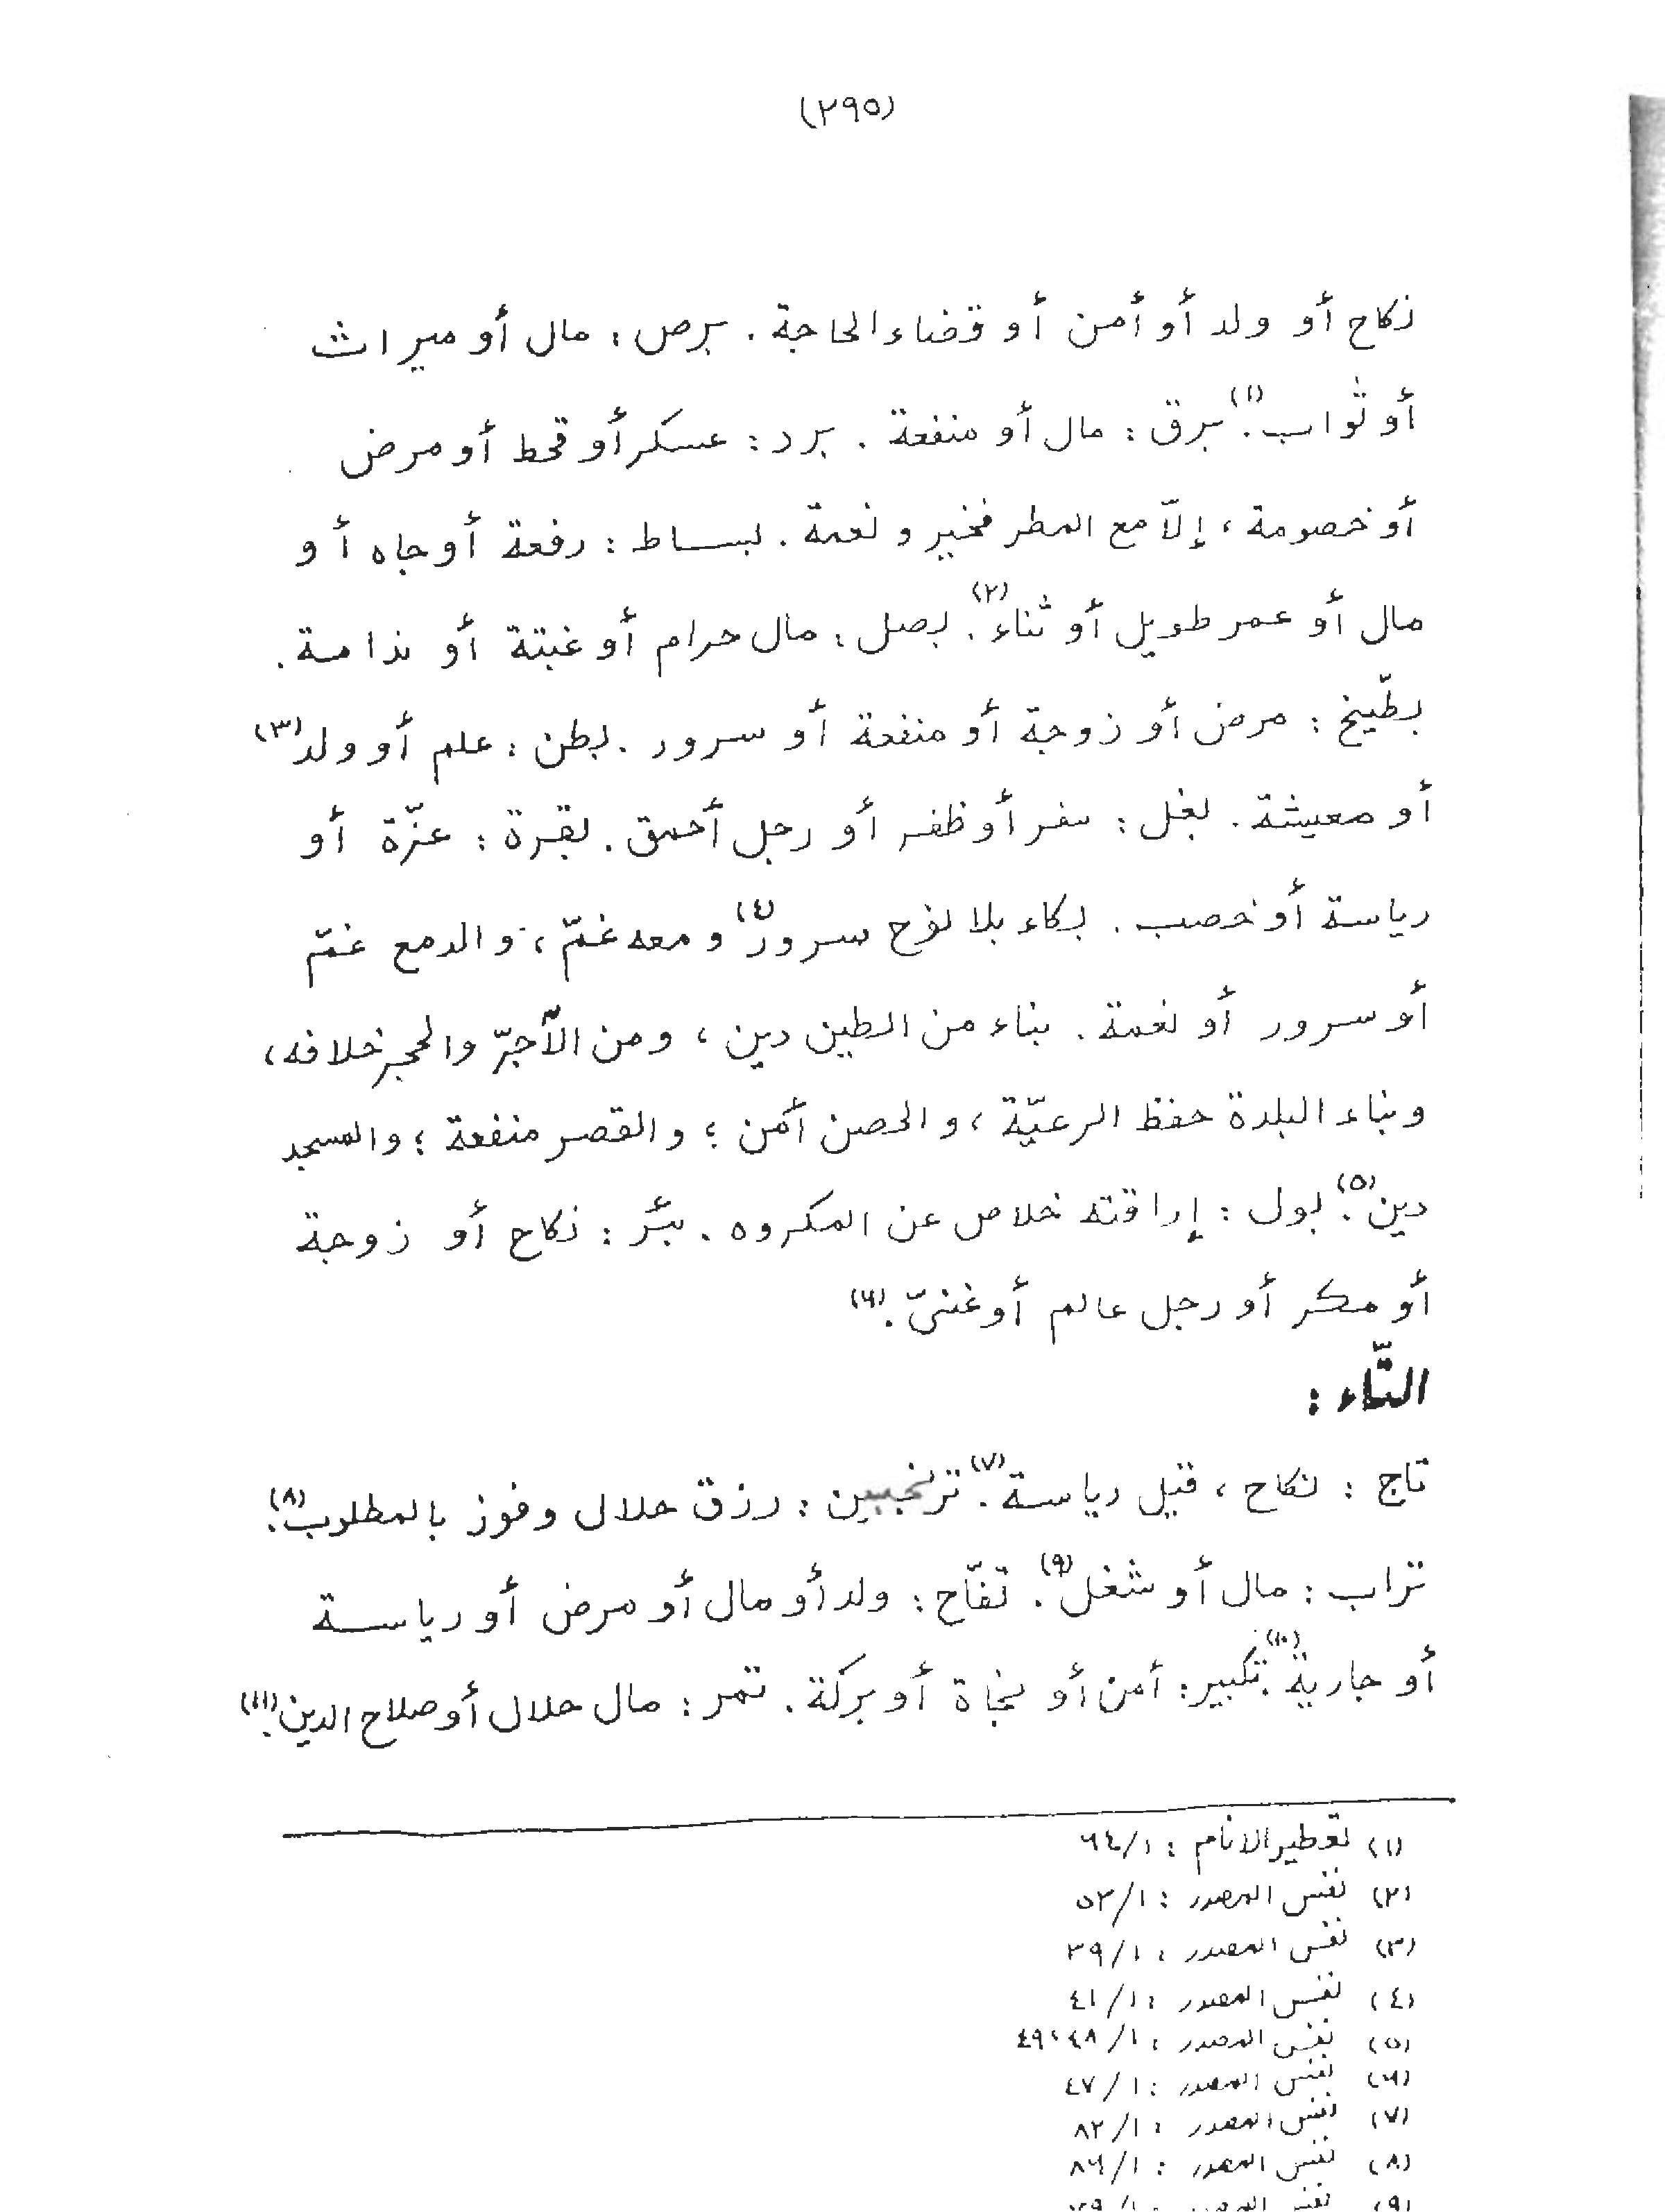 (٢٩٥)
نكاح أو ولد أو أمن أو قضاء الحاجة . برص : مال أو ميراث
أو ثواب .(١) برق : مال أو منفعة . برد : عسكر أو قحط أو مرض
أو خصومة ، إلّا مع المطر فخير و نعمة . بساط : رفعة أو جاه أو
مال أو عمر طويل أو ثناء .(٢) بصل : مال حرام أو غبتة أو ندامة .
بطّيخ : مرض أو زوجة أو منفعة أو سرور . بطن : علم أو ولد (٣)
أو معيشة . بغل : سفر أو ظفر أو رجل أحمق . بقرة : عزّة أو
رياسة أو خصب . بكاء بلا نوح سرور (٤) و معه غمّ ، و الدمع غمّ
أو سرور أو نعمة . بناء من الطين دين ، و من الآجرّ والحجر خلافه ،
و بناء البلدة حفظ الرعيّة ، و الحصن أمن ؛ و القصر منفعة ؛ و المسجد
دين .(٥) بول : إراقته خلاص عن المكروه . بئر : نكاح أو زوجة
أو مكر أو رجل عالم أو غنيّ .(٦)
التّاء :
تاج : نكاح ، قيل رياسة .(٧) ترنجبين : رزق حلال و فوز بالمطلوب .(٨)
تراب : مال أو شغل .(٩) تفّاح : ولد أو مال أو مرض أو رياسة
أو جارية .(١٠) تكبير : أمن أو نجاة أو بركة . تمر : مال حلال أو صلاح الدين .(١١)
(١) تعطير الانام : ١/٦٤
(٢) نفس المصدر : ١/٥٣
(٣) نفس المصدر : ١/٣٩
(٤) نفس المصدر : ١/٤١
(٥) نفس المصدر : ١/٤٨،٤٩
(٦) نفس المصدر : ١/٤٧
(٧) نفس المصدر : ١/٨٢
(٨) نفس المصدر : ١/٨٦
(٩) نفس المصدر